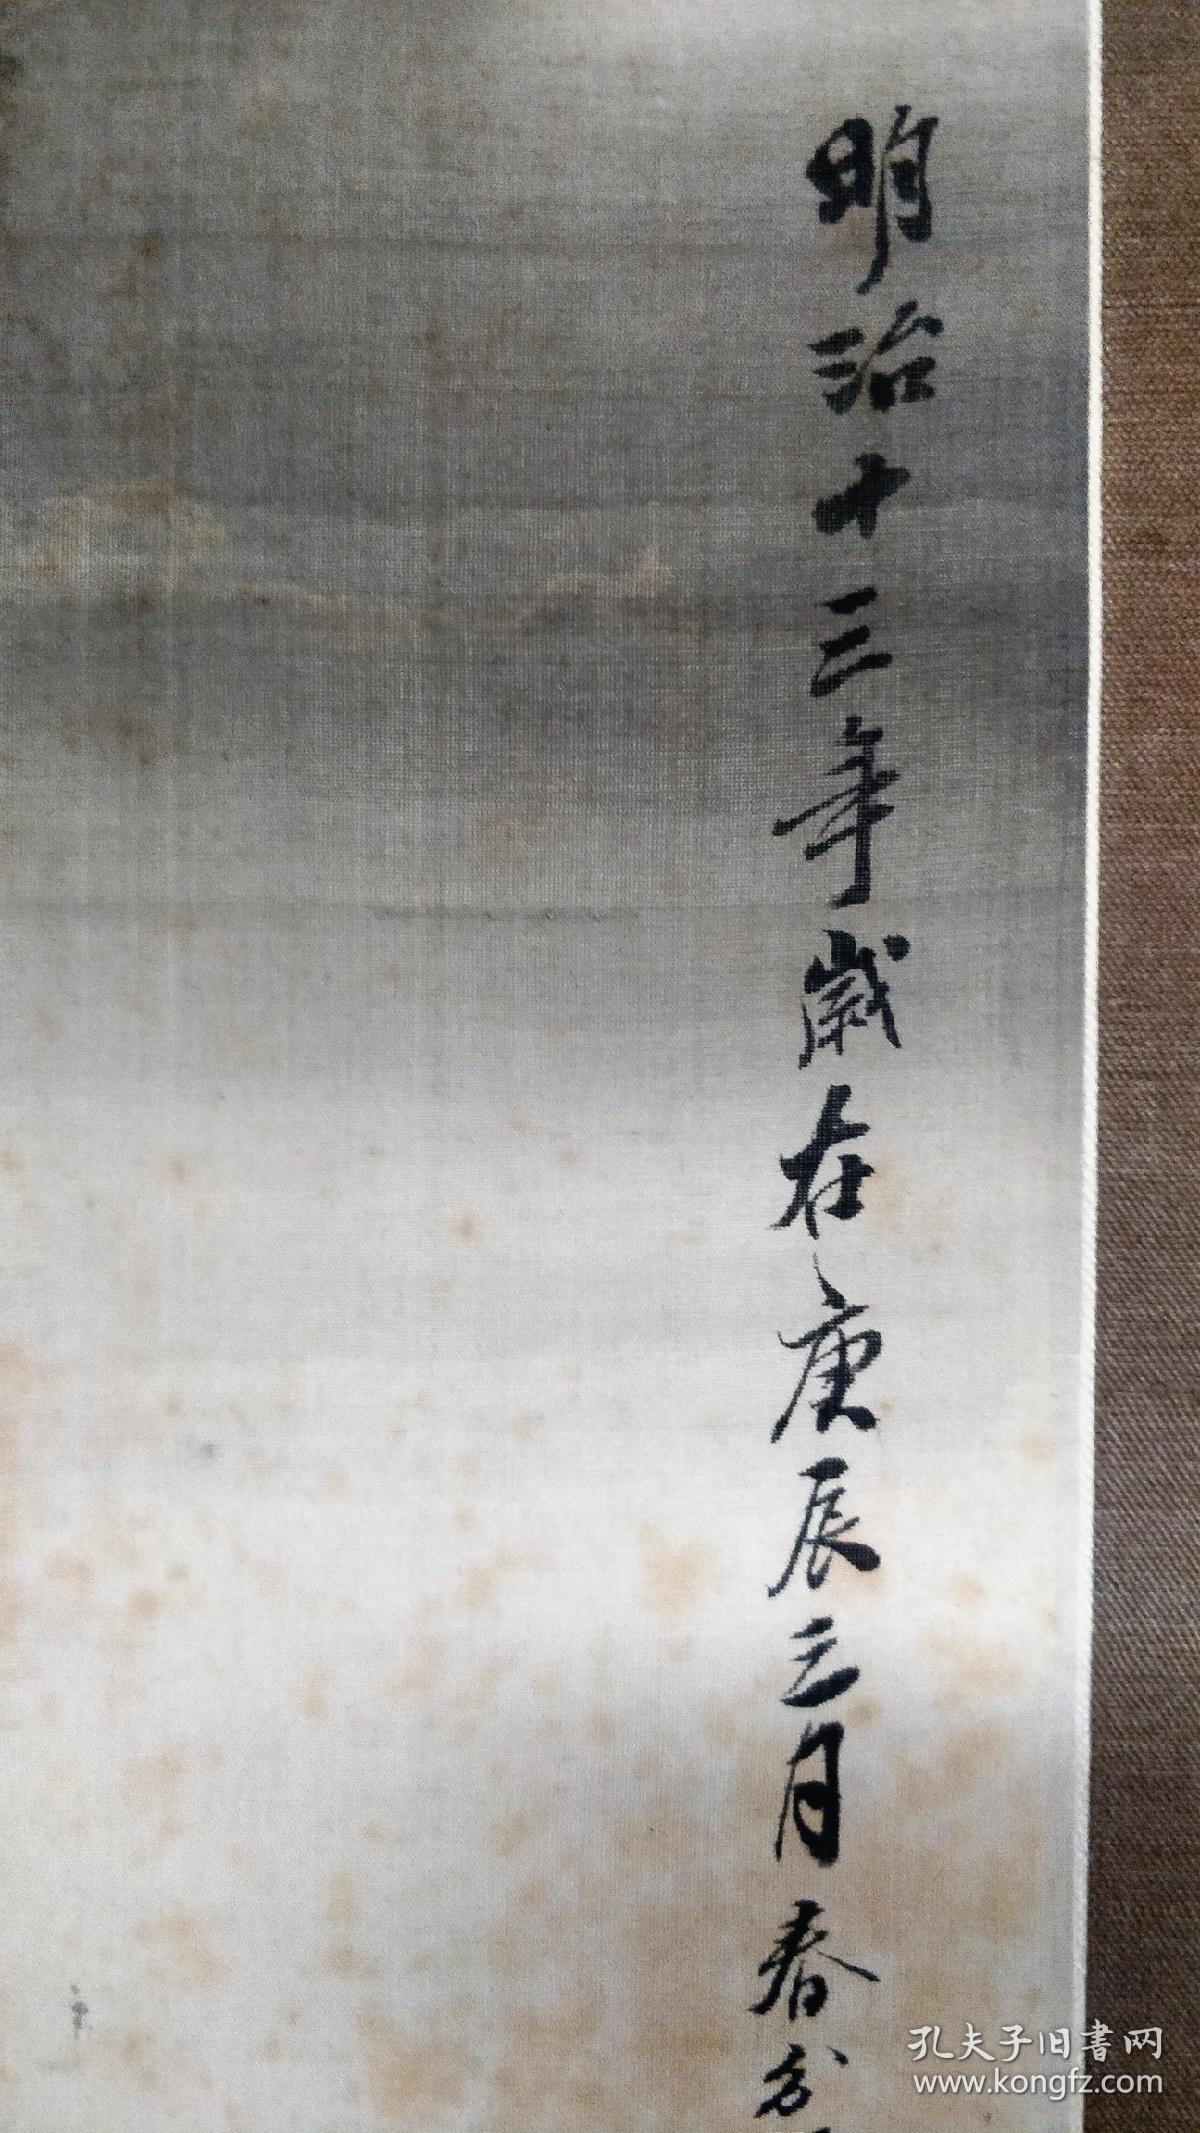 明治十三年歳在庚辰三月春分
孔夫子旧書网
www.kongfz.com